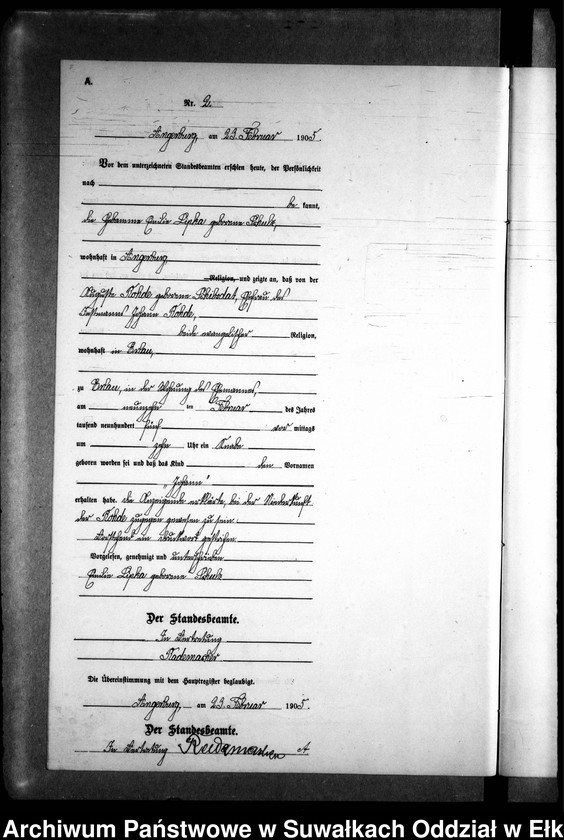 A.
Nr. 2.
Angerburg, am 23. Februar 1905.
Vor dem unterzeichneten Standesbeamten erschien heute, der Persönlichkeit
nach
be kannt,
die Hebamme Emilie Lipka geborene Schulz,
wohnhaft in Angerburg
Religion, und zeigte an, daß von der
Auguste Rohde geborene Schibodat, Ehefrau des
Johann Rohde,
beide evangelischer Religion,
wohnhaft in
zu in der Wohnung des Ehemannes,
am neunzehn ten Februar des Jahres
tausend neunhundert fünf vor mittags
um zehn Uhr ein Knabe
geboren worden sei und daß das Kind den Vornamen
„Johann"
erhalten habe. die Anzeigende erklärte, bei der Niederkunft
der Rohde zugegen gewesen zu sein.
Vorstehend ein Druckwort gestrichen
Vorgelesen, genehmigt und unterschrieben
Emilie Lipka geborene Schulz
Der Standesbeamte.
In Vertretung
Rademacher
Die Übereinstimmung mit dem Hauptregister beglaubigt.
Angerburg, am 23. Februar 1905.
Der Standesbeamte.
In Vertretung Rademacher
Archiwum Państwowe w Suwałkach Oddział w Ełku